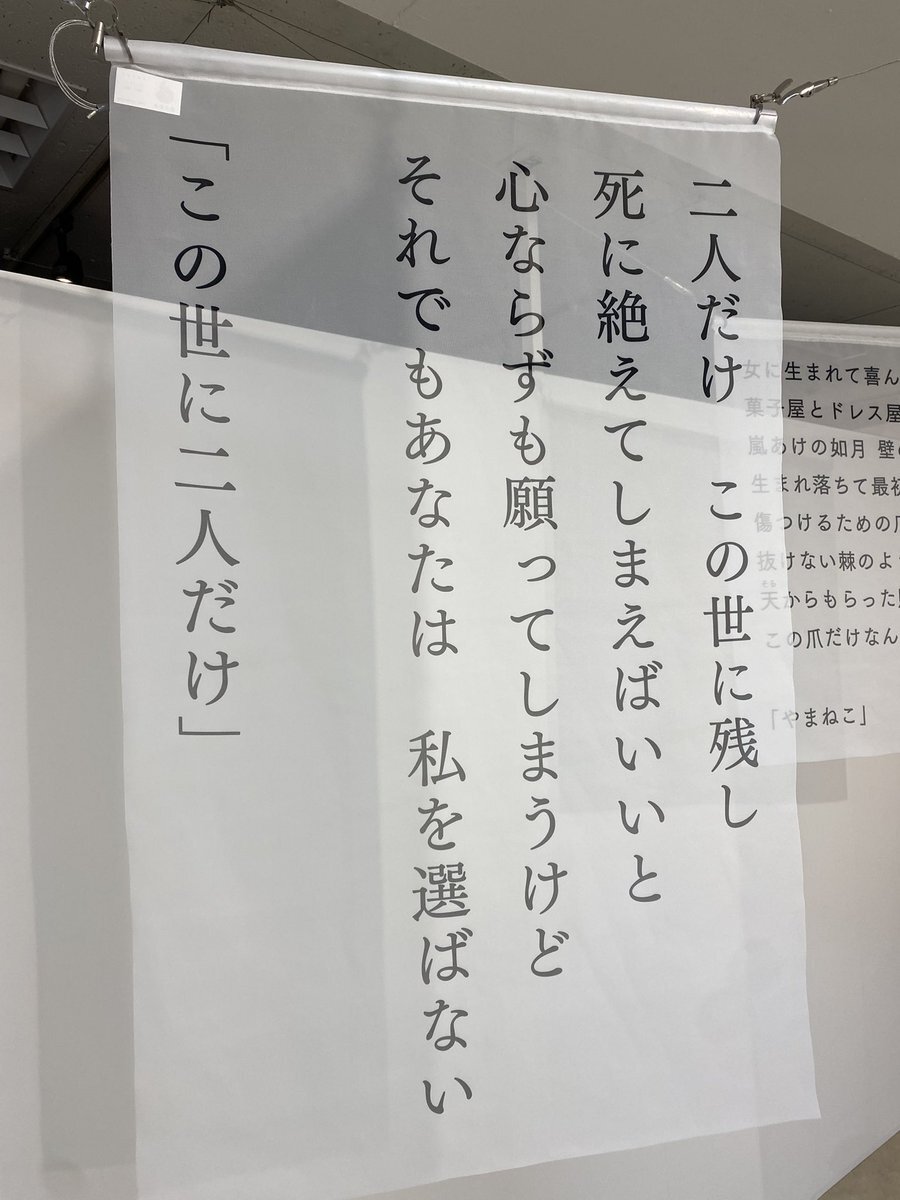 二人だけ　この世に残し
死に絶えてしまえばいいと
心ならずも願ってしまうけど
それでもあなたは　私を選ばない
「この世に二人だけ」
女に生まれて喜ん
菓子屋とドレス屋
嵐あけの如月 壁の
生まれ落ちて最初
傷つけるための爪
抜けない棘のよ
天からもらった
この爪だけなん
「やまねこ」